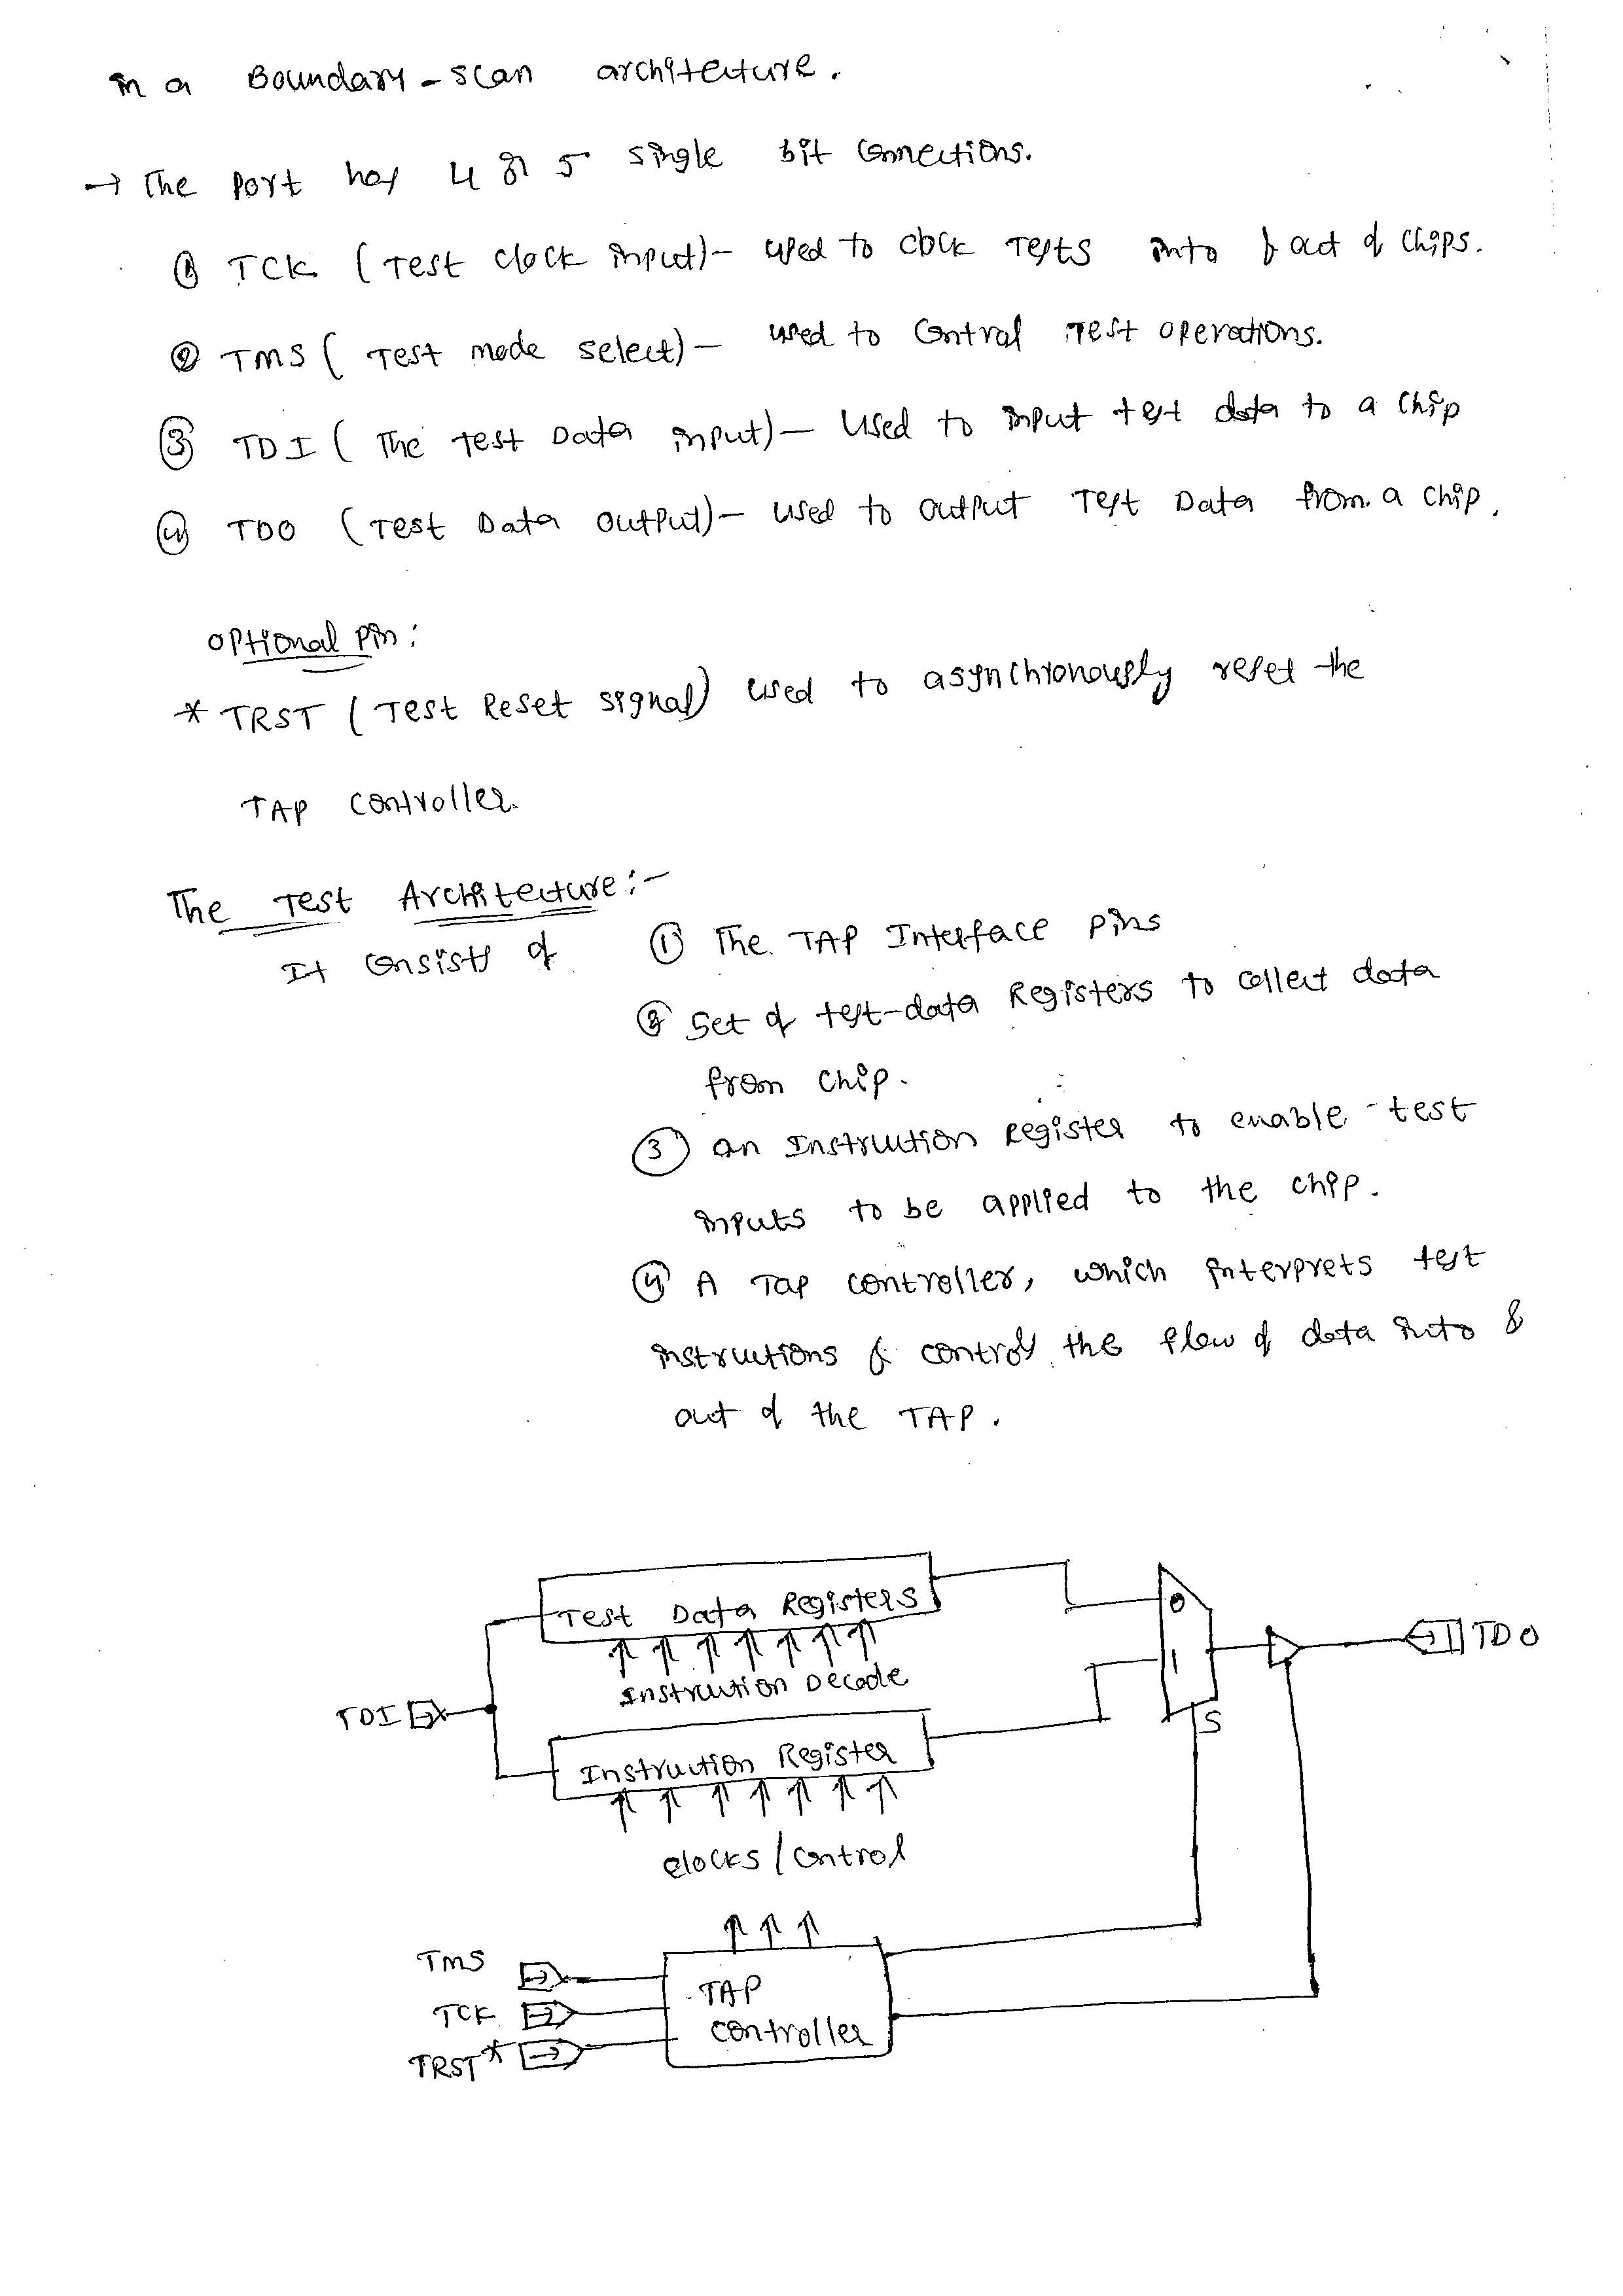 in a Boundary-scan architecture.
→ The port has 4 or 5 single bit connections.
① TCK (Test clock input)- used to clock Tests into & out of chips.
② TMS ( Test mode select)- used to control Test operations.
③ TDI ( The Test Data input)- Used to input test data to a chip
④ TDO (Test Data output)- used to output Test Data from a chip.
optional pin:
* TRST (Test Reset signal) used to asynchronously reset the
TAP controller.
The Test Architecture:-
It consists of ① The TAP Interface pins
② Set of test-data Registers to collect data
from chip.
③ an Instruction Register to enable test
inputs to be applied to the chip.
④ A Tap controller, which interprets test
instructions & controls the flow of data into &
out of the TAP.
Test Data Registers
0
TDO
Instruction Decode
1
TDI
S
Instruction Register
clocks / control
TMS
TAP
TCK
controller
TRST*